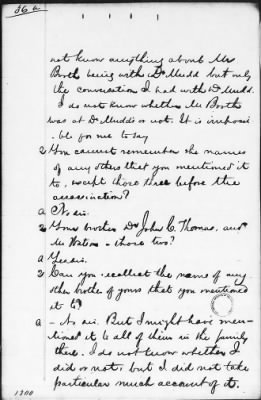 36 a
not know anything about Mr
Booth being with Dr Mudd but only
the conversation I had with Dr Mudd.
I do not know whether Mr Booth
was at Dr Mudds or not. It is impossi
-ble for me to say
Q You cannot remember the names
of any others that you mentioned it
to, except those before the
assassination?
a No sir.
Q Your brother Dr John C. Thomas, and
Mr Watson - those two?
a Yes sir.
Q Can you recollect the name of any
other brother of yours that you mentioned
it to?
a - No sir. But I might have men-
tioned it to all of them in the family
there. I do not know whether I
did or not, but I did not take
particular much account of it.
1300